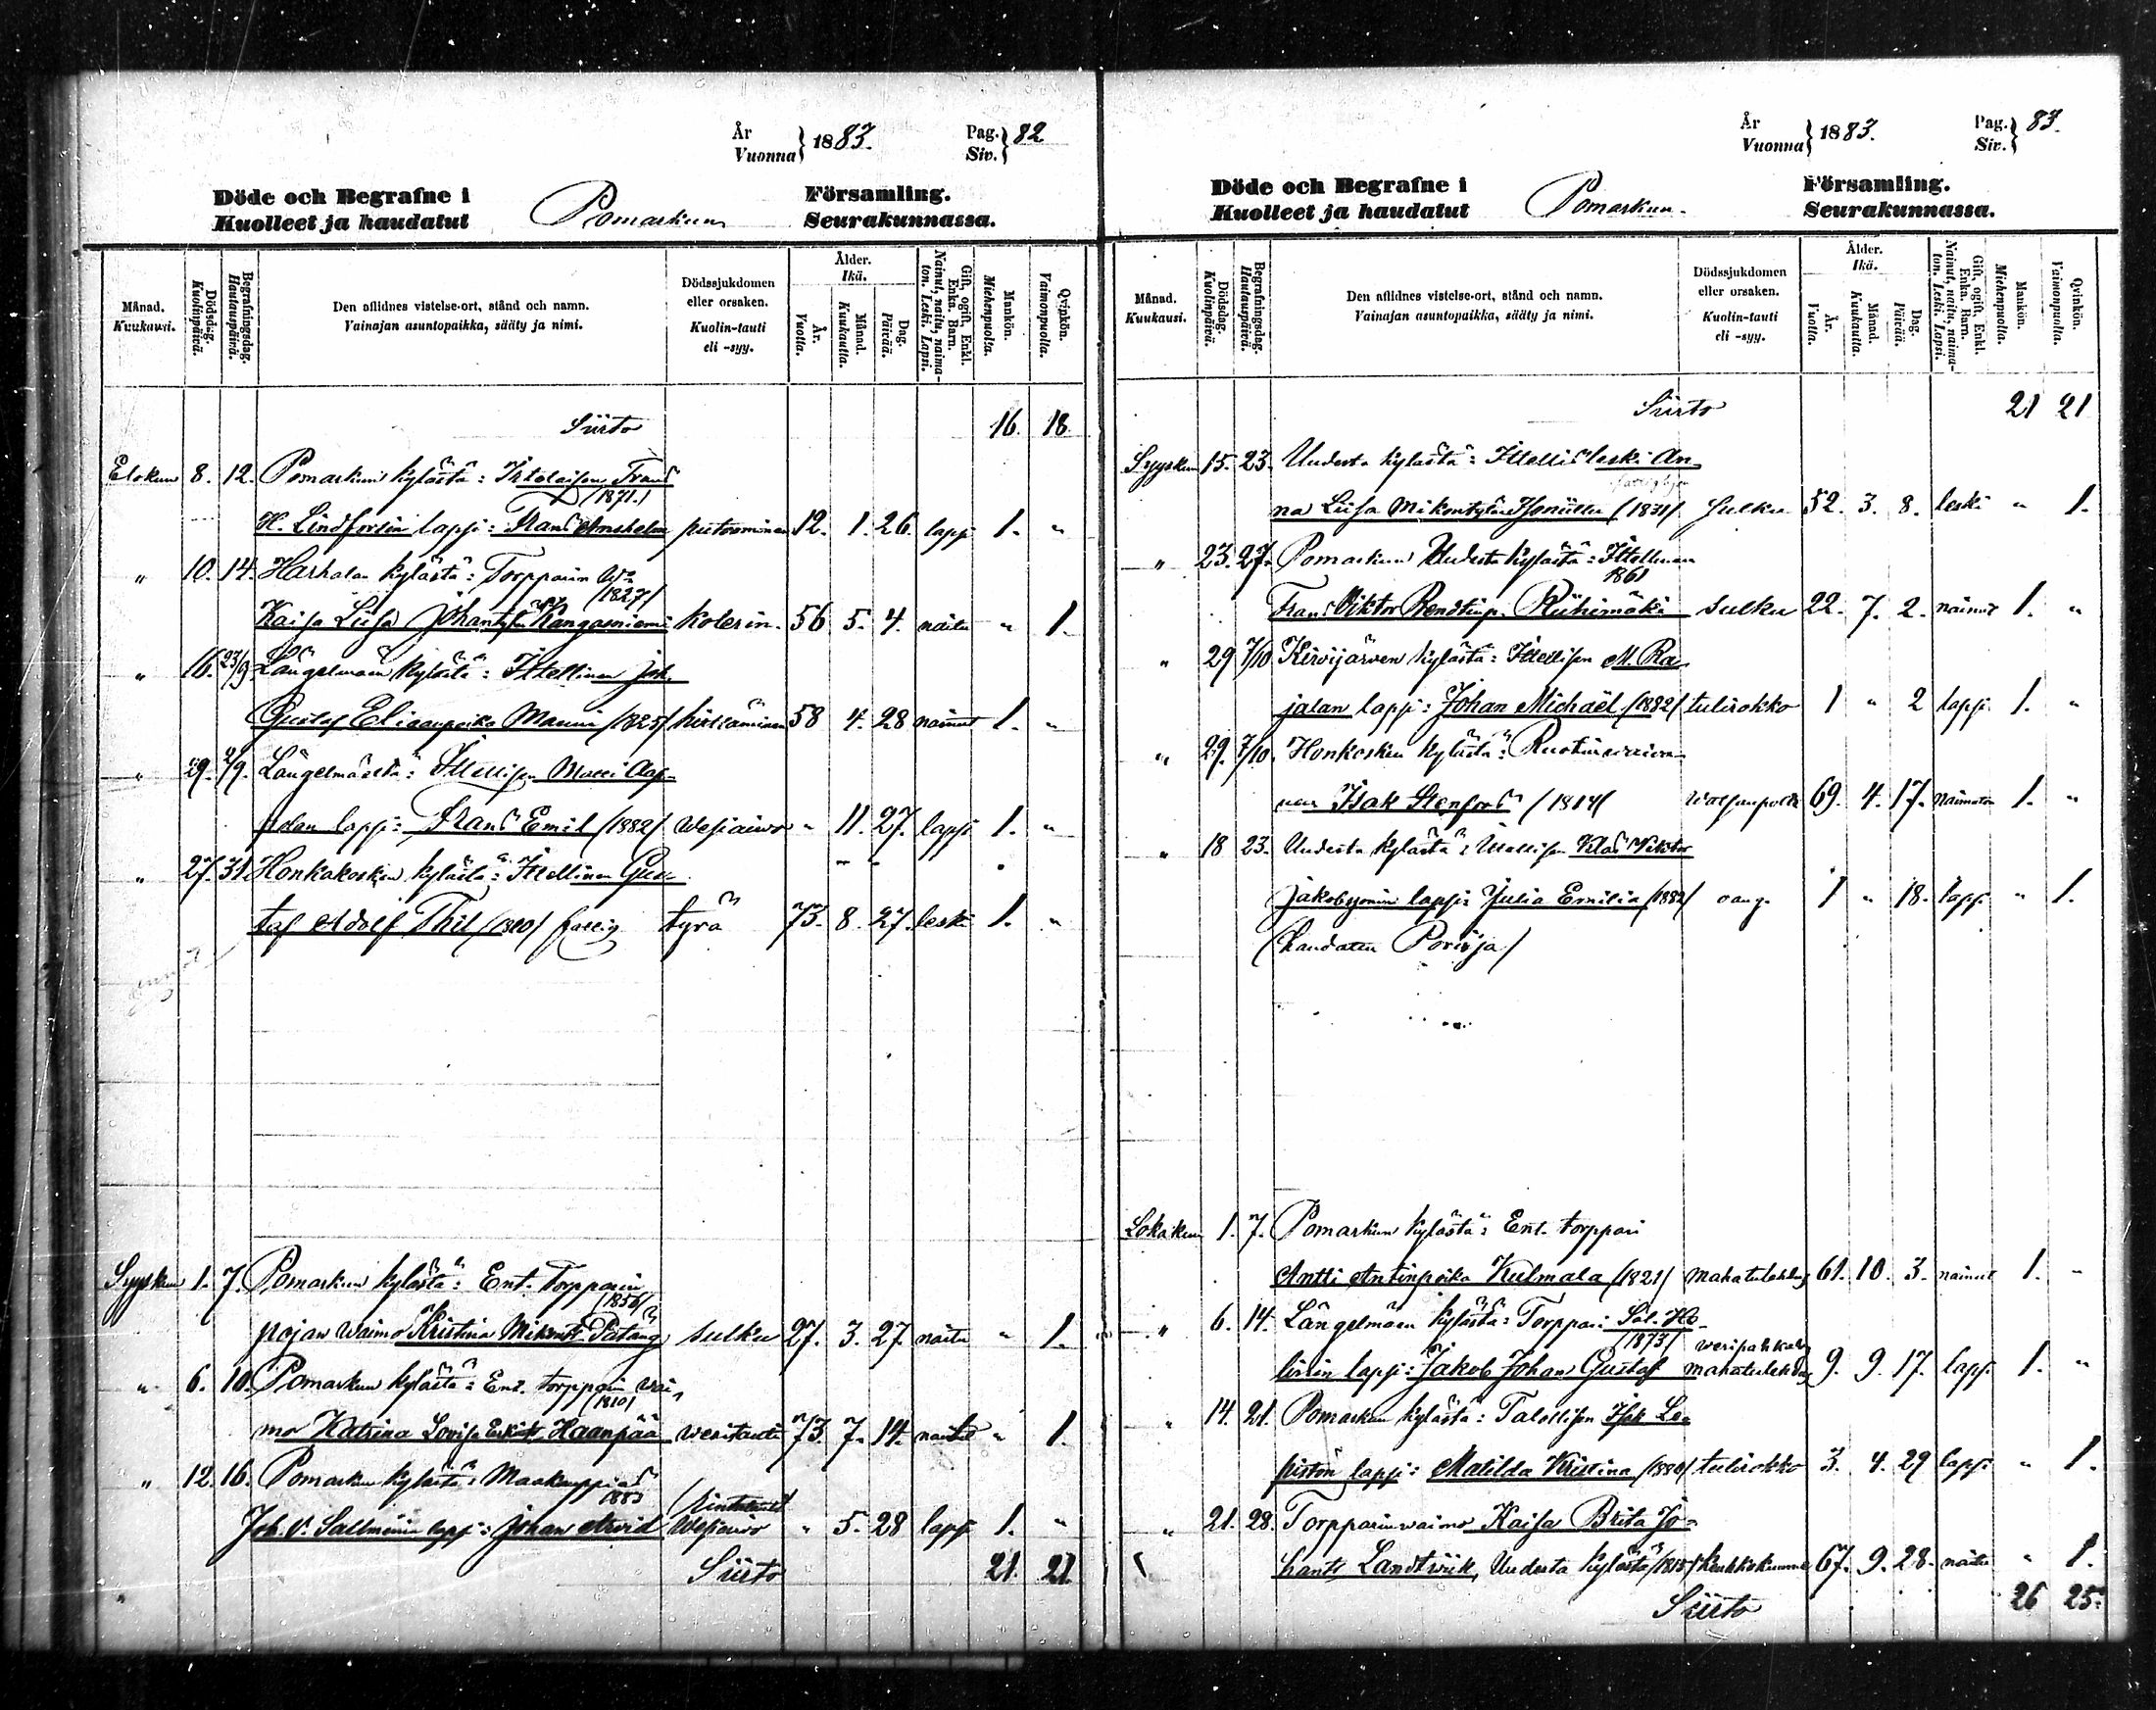 År
Vuonna } 1883.
Pag.
Siv. } 82
Döde och Begrafne i
Kuolleet ja haudatut
Pomarkun
Församling.
Seurakunnassa.
Månad.
Kuukausi.
Dödsdag.
Kuolinpäivä.
Begrafningsdag.
Hautauspäivä.
Den aflidnes vistelse-ort, stånd och namn.
Vainajan asuntopaikka, sääty ja nimi.
Dödssjukdomen
eller orsaken.
Kuolin-tauti
eli -syy.
Ålder.
Ikä.
År.
Vuotta.
Månad.
Kuukautta.
Dag.
Päivää.
Gift, ogift, Enkl.
Enka. Barn.
Nainut, naitu, naima-
ton. Leski. Lapsi.
Mankön.
Miehenpuolta.
Qvinkön.
Vaimonpuolta.
Siirto 16. 18.
Elokuu 8. 12. Pomarkun kylästä: Frans
/1871./
H. Lindforsin lapsi: Frans putoominen 12. 1. 26. lapsi 1. "
" 10. 14. Harhalan kylästä: Torpparin
/1827/
Kaisa Liisa Kangasniemi kolerin. 56 5. 4. naitu " 1.
" 16. 23/9 Längelmäen kylästä: Itsellinen Joh.
Gustaf Eliaanpoika Manni /1825/ 58 4. 28 nainut 1. "
" 29. 2/9. Längelmäeltä: Itsellisen Matti
lapsi: Frans Emil /1882/ Wesiaiwo " 11. 27. lapsi 1. "
" 27. 31 Honkakosken kylästä: Itsellinen Gus-
taf Adolf Thil /1810/ fattig tyrä 73. 8. 27. leski 1. "
Syyskuu 1. 7. Pomarkun kylästä: Ent. Torpparin
/1856/
pojan waimo Kristina Mikont. sulku 27. 3. 27. naitu " 1.
" 6. 10. Pomarkun kylästä: Ent. torpparin wai-
/1810/
mo Katrina Lovisa Erkint. Haanpää weritauti 73. 7. 14. naitu " 1.
" 12. 16. Pomarkun kylästä: Maakauppias
1883
Joh. V. Sallménin lapsi: Johan Arvid Wesiaiwo " 5. 28 lapsi 1. "
Siirto 21. 21.
År
Vuonna } 1883.
Pag.
Siv. } 83.
Döde och Begrafne i
Kuolleet ja haudatut
Pomarkun.
Församling.
Seurakunnassa.
Månad.
Kuukausi.
Dödsdag.
Kuolinpäivä.
Begrafningsdag.
Hautauspäivä.
Den aflidnes vistelse-ort, stånd och namn.
Vainajan asuntopaikka, sääty ja nimi.
Dödssjukdomen
eller orsaken.
Kuolin-tauti
eli -syy.
Ålder.
Ikä.
År.
Vuotta.
Månad.
Kuukautta.
Dag.
Päivää.
Gift, ogift, Enkl.
Enka. Barn.
Nainut, naitu, naima-
ton. Leski. Lapsi.
Mankön.
Miehenpuolta.
Qvinkön.
Vaimonpuolta.
Siirto 21 21
Syyskuu 15. 23. Uudesta kylästä: Itsellis leski An-
na Liisa Mikontytär /1831/ sulku 52. 3. 8. leski " 1.
" 23. 27. Pomarkun Uudesta kylästä: Itsellinen
1861
Frans Viktor Riihimäki sulku 22. 7. 2. nainut 1. "
" 29 7/10 Kivijärven kylästä: Itsellisen M. Ra-
jalan lapsi: Johan Michaël /1882/ tulirokko 1 " 2 lapsi 1. "
" 29. 7/10. Honkosken kylästä: Ruotiwaiwai-
nen Isak Stenfors /1814/ 69. 4. 17. naimaton 1. "
" 18 23. Uudesta kylästä: Itsellisen Klas Viktor
Jakobssonin lapsi: Julia Emilia /1882/ 1 " 18. lapsi " 1.
(haudattu Porissa)
Lokakuu 1. 7. Pomarkun kylästä: Ent. torppari
Antti Antinpoika Kulmala /1821/ mahatulehdus 61. 10. 3. nainut 1. "
" 6. 14. Längelmäen kylästä: Torppari Sal. He-
/1873/
linin lapsi: Jakob Johan Gustaf mahatulehdus 9. 9. 17. lapsi 1. "
" 14. 21. Pomarkun kylästä: Talollisen Isk Le-
pistön lapsi: Matilda Kristina /1880/ tulirokko 3. 4. 29 lapsi " 1.
" 21. 28. Torpparinwaimo Kaisa Brita Jo-
hant. Landtwik, Uudesta kylästä /1815/ 67. 9. 28. naitu " 1.
Siirto 26 25.